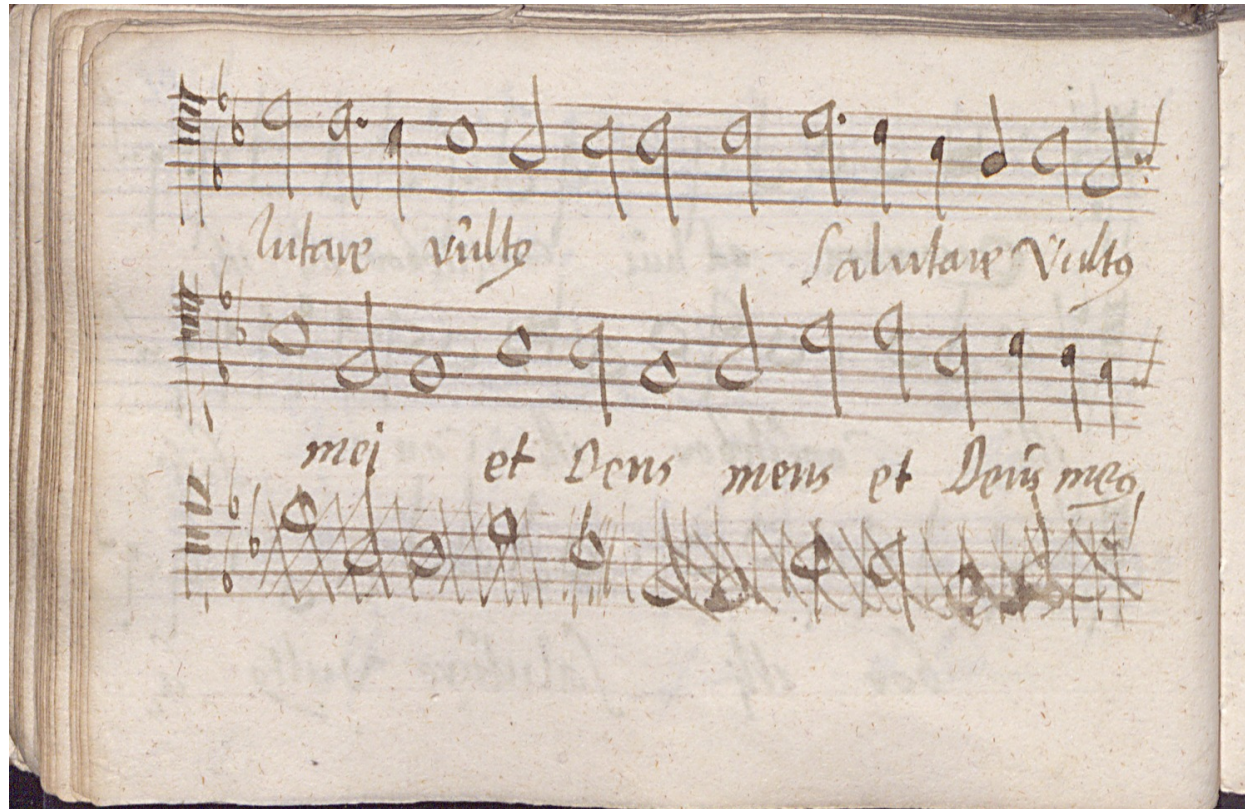 lutare vultꝰ salutare vultꝰ
mei et Deus meus et Deus meꝰ